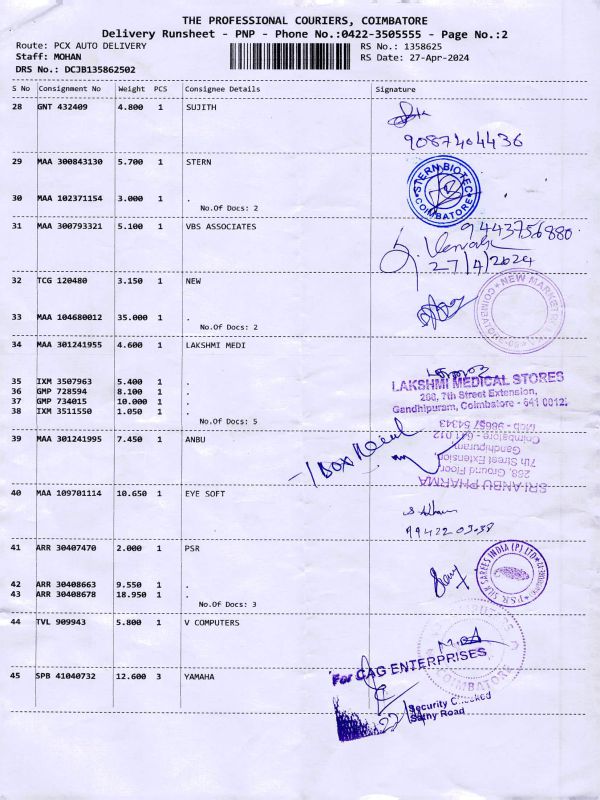 THE PROFESSIONAL COURIERS, COIMBATORE
Delivery Runsheet - PNP - Phone No.:0422-3505555 - Page No.:2
Route: PCX AUTO DELIVERY RS No.: 1358625
Staff: MOHAN RS Date: 27-Apr-2024
DRS No.: DCJB135862502
S No Consignment No Weight PCS Consignee Details Signature
28 GNT 432409 4.800 1 SUJITH
9087404436
29 MAA 300843130 5.700 1 STERN
STERN BIOTEC
COIMBATORE
30 MAA 102371154 3.000 1 .
No.Of Docs: 2
31 MAA 300793321 5.100 1 VBS ASSOCIATES
9443756880
27/4/2024
32 TCG 120480 3.150 1 NEW
NEW MARKET
33 MAA 104680012 35.000 1 .
No.Of Docs: 2
34 MAA 301241955 4.600 1 LAKSHMI MEDI
LAKSHMI MEDICAL STORES
268, 7th Street Extension,
Gandhipuram, Coimbatore - 641 0012.
35 IXM 3507963 5.400 1 .
36 GMP 728594 8.100 1 .
37 GMP 734015 10.000 1 .
38 IXM 3511550 1.050 1 .
No.Of Docs: 5
39 MAA 301241995 7.450 1 ANBU
SRI ANBU PHARMA
268, Ground Floor,
7th Street Extension,
Gandhipuram,
Coimbatore - 641 012
Mob - 96667 54343
40 MAA 109701114 10.650 1 EYE SOFT
41 ARR 30407470 2.000 1 PSR
PSR SILK SAREES INDIA (P) LTD
42 ARR 30408663 9.550 1 .
43 ARR 30408678 18.950 1 .
No.Of Docs: 3
44 TVL 909943 5.800 1 V COMPUTERS
COIMBATORE
45 SPB 41040732 12.600 3 YAMAHA
For CAG ENTERPRISES
Security Checked
Sathy Road